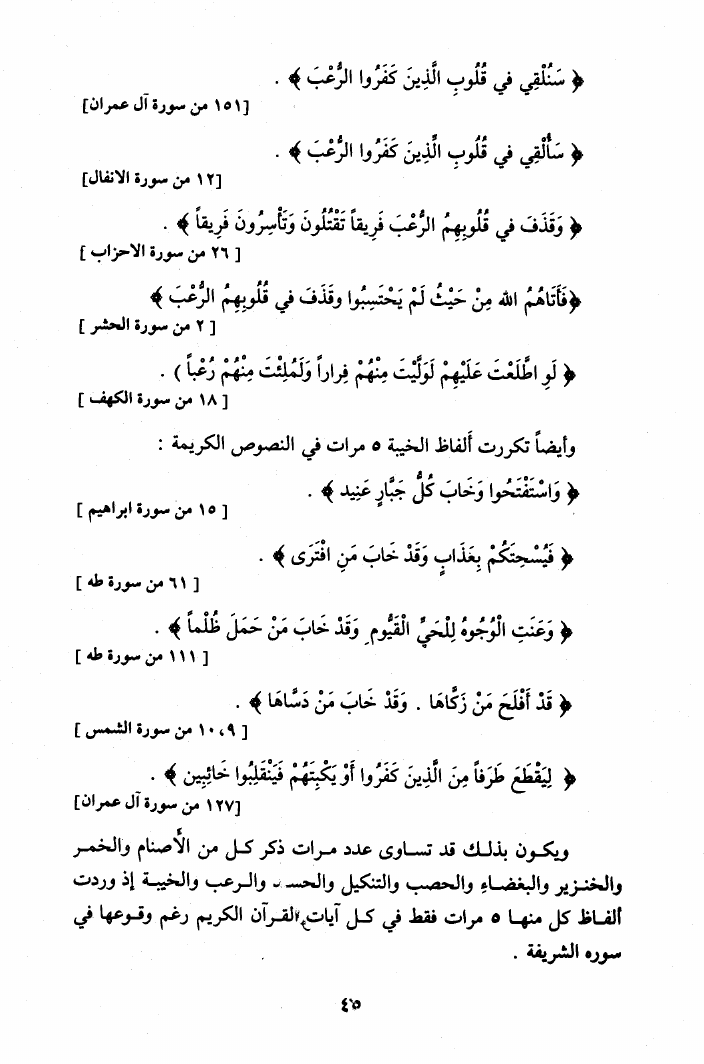 ﴿ سَنُلْقِي في قُلُوبِ الَّذِينَ كَفَرُوا الرُّعْبَ ﴾ .
[١٥١ من سورة آل عمران]
﴿ سَأُلْقِي في قُلُوبِ الَّذِينَ كَفَرُوا الرُّعْبَ ﴾ .
[١٢ من سورة الانفال]
﴿ وَقَذَفَ في قُلُوبِهِمُ الرُّعْبَ فَرِيقاً تَقْتُلُونَ وَتَأْسِرُونَ فَرِيقاً ﴾ .
[ ٢٦ من سورة الاحزاب ]
﴿فَأَتَاهُمُ الله مِنْ حَيْثُ لَمْ يَحْتَسِبُوا وقَذَفَ في قُلُوبِهِمُ الرُّعْبَ ﴾
[ ٢ من سورة الحشر ]
﴿ لَوِ اطَّلَعْتَ عَلَيْهِمْ لَوَلَّيْتَ مِنْهُمْ فِراراً وَلَمُلِئْتَ مِنْهُمْ رُعْباً ) .
[ ١٨ من سورة الكهف ]
وأيضاً تكررت ألفاظ الخيبة ٥ مرات في النصوص الكريمة :
﴿ وَاسْتَفْتَحُوا وَخَابَ كُلُّ جَبَّارٍ عَنِيد ﴾ .
[ ١٥ من سورة ابراهيم ]
﴿ فَيُسْحِتَكُمْ بِعَذَابٍ وَقَدْ خَابَ مَنِ افْتَرَى ﴾ .
[ ٦١ من سورة طه ]
﴿ وَعَنَتِ الْوُجُوهُ لِلْحَيِّ الْقَيُّومِ وَقَدْ خَابَ مَنْ حَمَلَ ظُلْماً ﴾ .
[ ١١١ من سورة طه ]
﴿ قَدْ أَفْلَحَ مَنْ زَكَّاهَا . وَقَدْ خَابَ مَنْ دَسَّاهَا ﴾ .
[ ١٠،٩ من سورة الشمس ]
﴿ لِيَقْطَعَ طَرَفاً مِنَ الَّذِينَ كَفَرُوا أَوْ يَكْبِتَهُمْ فَيَنْقَلِبُوا خَائِبِين ﴾ .
[١٢٧ من سورة آل عمران]
ويكون بذلك قد تساوى عدد مرات ذكر كل من الأصنام والخمر
والخنزير والبغضاء والحصب والتنكيل والحسد والرعب والخيبة إذ وردت
ألفاظ كل منها ٥ مرات فقط في كل آيات القرآن الكريم رغم وقوعها في
سوره الشريفة .
٤٥